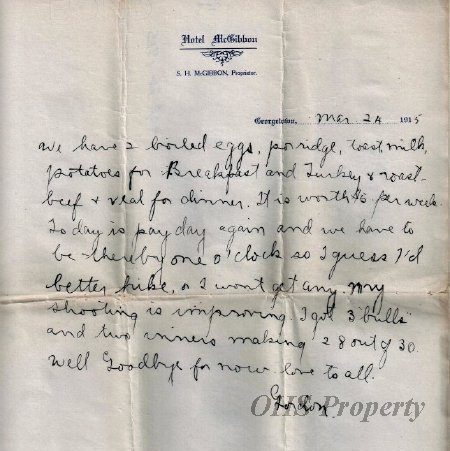 Hotel McGibbon
S. H. McGIBBON, Proprietor.
Georgetown, Mar 24 1915
We have 2 boiled eggs, porridge, toast, milk,
potatoes for Breakfast and Turkey & roast
beef & veal for dinner. It is worth $6 per week.
Today is pay day again and we have to
be there by one o'clock so I guess I'd
better hike, or I wont get any my
shooting is improving. I got 3 "bulls"
and two inners making 28 out of 30.
Well Goodbye for now love to all.
Gordon
OHS Property